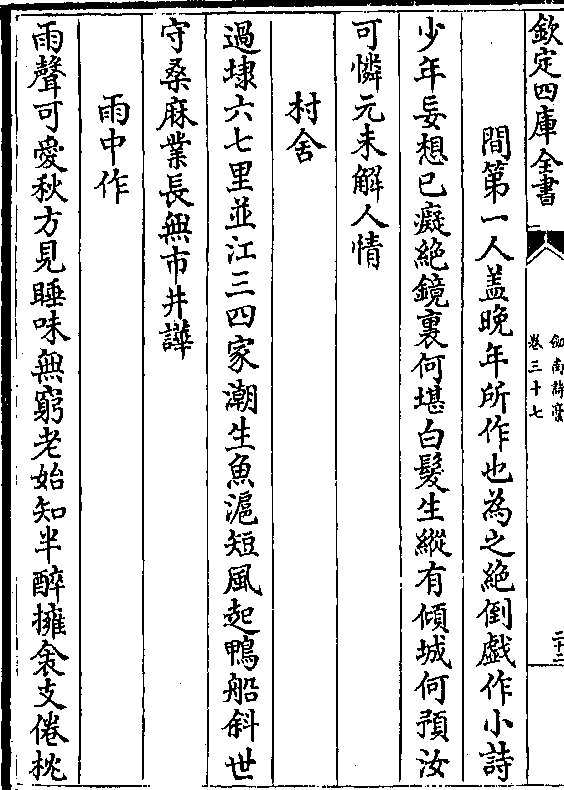 欽定四庫全書
劍南詩藁
卷三十七
二十二
間第一人蓋晚年所作也為之絕倒戲作小詩
少年妄想已癡絕鏡裏何堪白髮生縱有傾城何預汝
可憐元未解人情
村舍
過埭六七里並江三四家潮生魚滬短風起鴨船斜世
守桑麻業長無市井譁
雨中作
雨聲可愛秋方見睡味無窮老始知半醉擁衾支倦枕